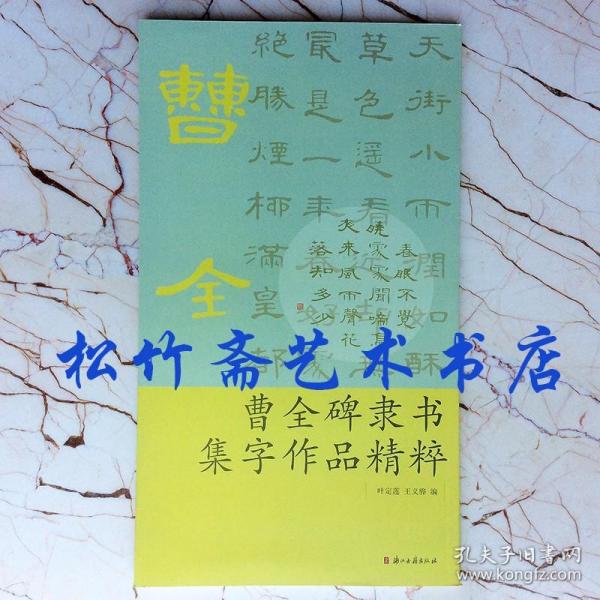 曹全
天街小雨润如酥
草色遥看
最是一年春好
绝胜烟柳满皇都
春眠不覺
曉家家聞啼鳥
夜来風雨聲花
落知多少
松竹斋艺术书店
曹全碑隶书
集字作品精粹
叶定莲 王义骅 编
浙江古籍出版社
孔夫子旧书网
www.kongfz.com